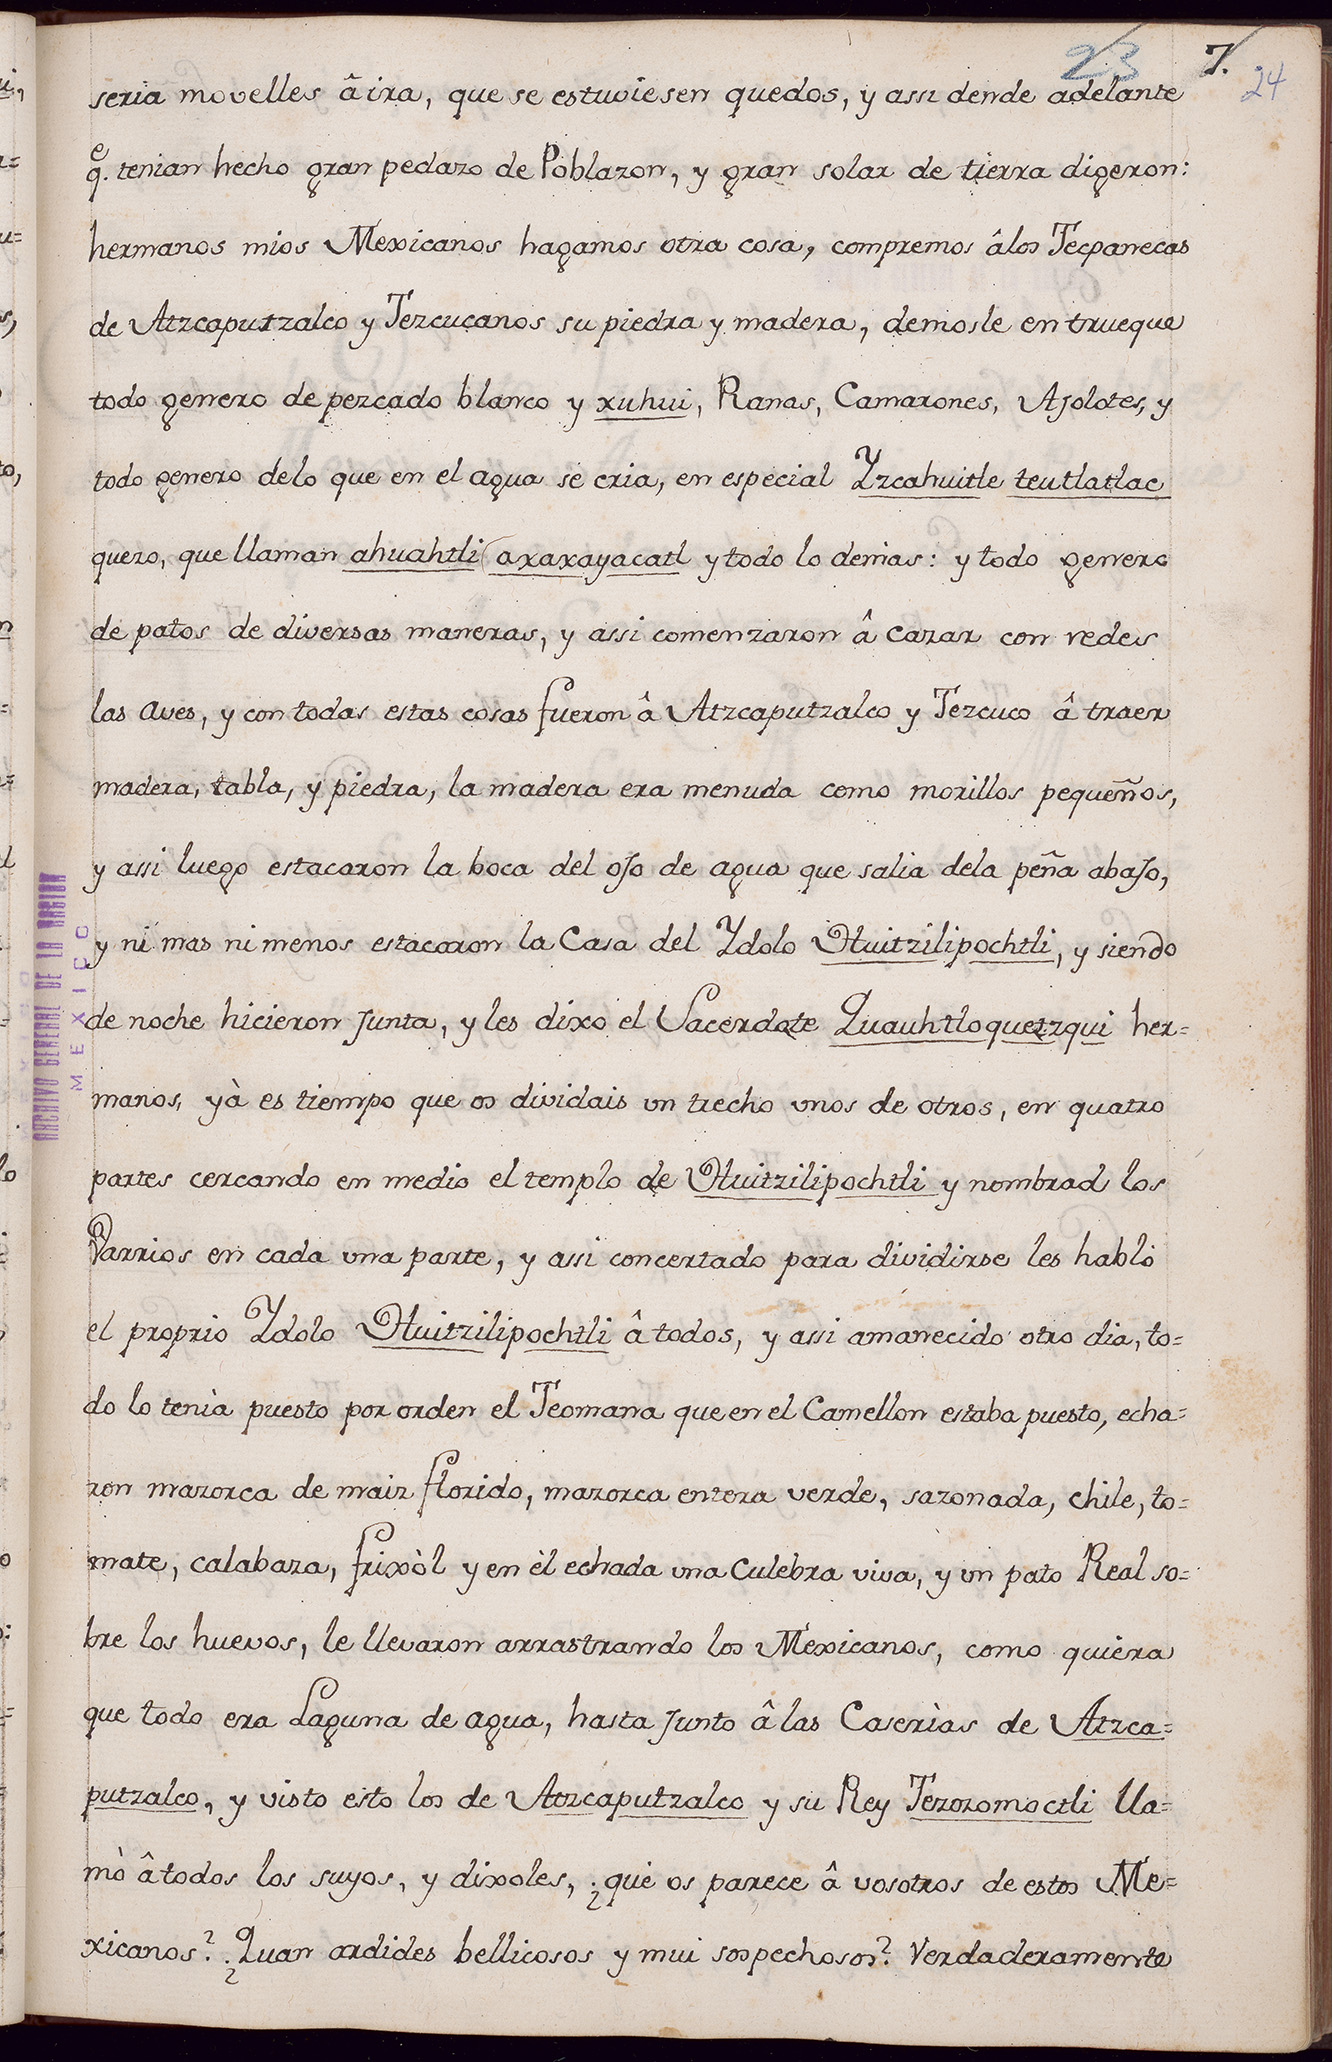 23 7. 24
seria movelles â ira, que se estuviesen quedos, y assi dende adelante
q.e tenian hecho gran pedazo de Poblazon, y gran solar de tierra digeron:
hermanos mios Mexicanos hagamos otra cosa, compremos âlos Tecpanecas
de Atzcaputzalco y Tezcucanos su piedra y madera, demosle en trueque
todo genero de pezcado blanco y xuhui, Ranas, Camarones, Ajolotes, y
todo genero delo que en el agua se cria, en especial Yzcahuitle teutlatlac
quezo, que llaman ahuahtli (axaxayacatl y todo lo demas: y todo genero
de patos de diversas maneras, y assi comenzaron â cazar con redes
las aves, y con todas estas cosas fueron â Atzcaputzalco y Tezcuco â traer
madera, tabla, y piedra, la madera era menuda como morillos pequeños,
y assi luego estacaron la boca del ojo de agua que salia dela peña abajo,
y ni mas ni menos estacaron la Casa del Ydolo Huitzilipochtli, y siendo
de noche hicieron Junta, y les dixo el Sacerdote Quauhtloquetzqui her=
manos, yà es tiempo que os dividais un trecho unos de otros, en quatro
partes cercando en medio el templo de Huitzilipochtli y nombrad los
Varrios en cada una parte, y assi concertado para dividirse les hablò
el proprio Ydolo Huitzilipochtli â todos, y assi amanecido otro dia, to=
do lo tenìa puesto por orden el Teomana que en el Camellon estaba puesto, echa=
ron mazorca de maiz florido, mazorca entera verde, sazonada, chile, to=
mate, calabaza, frixòl y en èl echada una Culebra viva, y un pato Real so=
bre los huevos, le llevaron arrastrando los Mexicanos, como quiera
que todo era Laguna de agua, hasta junto â las Caserìas de Atzca=
putzalco, y visto esto los de Atzcaputzalco y su Rey Tezozomoctli lla=
mò â todos los suyos, y dixoles, ¿què os parece â vosotros de estos Me=
xicanos? ¿Quan ardides bellicosos y mui sospechosos? Verdaderamente
ARCHIVO GENERAL DE LA NACION
MEXICO